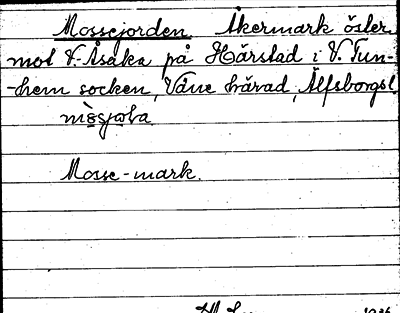 Mossejorden Åkermark öster
mot V. Åsaka på Hårstad i V. Tun-
-hem socken, Väne härad, Älfsborgsl.
Mosse-mark.